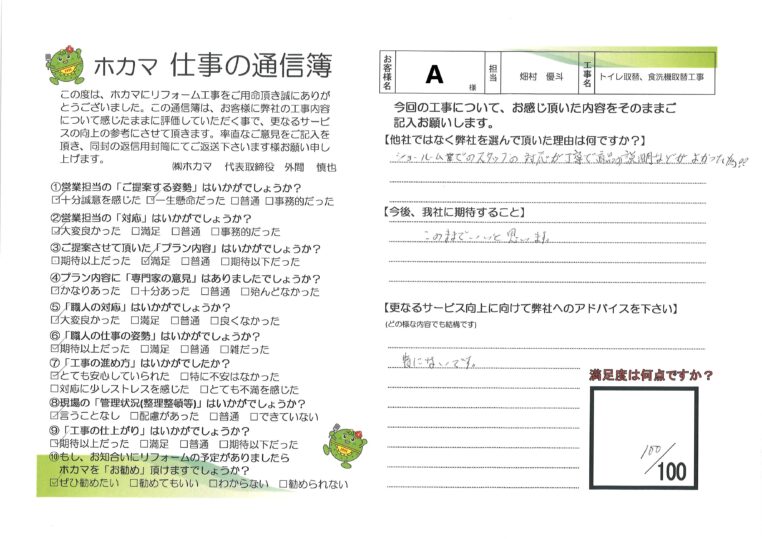 ホカマ 仕事の通信簿
この度は、ホカマにリフォーム工事をご用命頂き誠にありが
とうございました。この通信簿は、お客様に弊社の工事内容
について感じたままに評価していただく事で、更なるサービ
スの向上の参考にさせて頂きます。率直なご意見をご記入を
頂き、同封の返信用封筒にてご返送下さいます様お願い申し
上げます。
㈱ホカマ 代表取締役 外間 慎也
①営業担当の「ご提案する姿勢」はいかがでしょうか?
☑十分誠意を感じた ☑一生懸命だった □普通 □事務的だった
②営業担当の「対応」はいかがでしょうか?
☑大変良かった □満足 □普通 □事務的だった
③ご提案させて頂いた「プラン内容」はいかがでしょうか?
□期待以上だった ☑満足 □普通 □期待以下だった
④プラン内容に「専門家の意見」はありましたでしょうか?
☑かなりあった □十分あった □普通 □殆んどなかった
⑤「職人の対応」はいかがでしょうか?
☑大変良かった □満足 □普通 □良くなかった
⑥「職人の仕事の姿勢」はいかがでしょうか?
☑期待以上だった □満足 □普通 □雑だった
⑦「工事の進め方」はいかがでしたか?
☑とても安心していられた □特に不安はなかった
□対応に少しストレスを感じた □とても不満を感じた
⑧現場の「管理状況(整理整頓等)」はいかがでしょうか?
☑言うことなし □配慮があった □普通 □できていない
⑨「工事の仕上がり」はいかがでしょうか?
☑期待以上だった □満足 □普通 □期待以下だった
⑩もし、お知合いにリフォームの予定がありましたら
ホカマを「お勧め」頂けますでしょうか?
☑ぜひ勧めたい □勧めてもいい □わからない □勧められない
お客様名 A 様 担当 畑村 優斗 工事名 トイレ取替、食洗機取替工事
今回の工事について、お感じ頂いた内容をそのままご
記入お願いします。
【他社ではなく弊社を選んで頂いた理由は何ですか?】
ショールーム等でのスタッフの対応が丁寧で商品の説明などがよかった為
【今後、我社に期待すること】
このままでいいと思います。
【更なるサービス向上に向けて弊社へのアドバイスを下さい】
(どの様な内容でも結構です)
特にないです。
満足度は何点ですか?
100/100